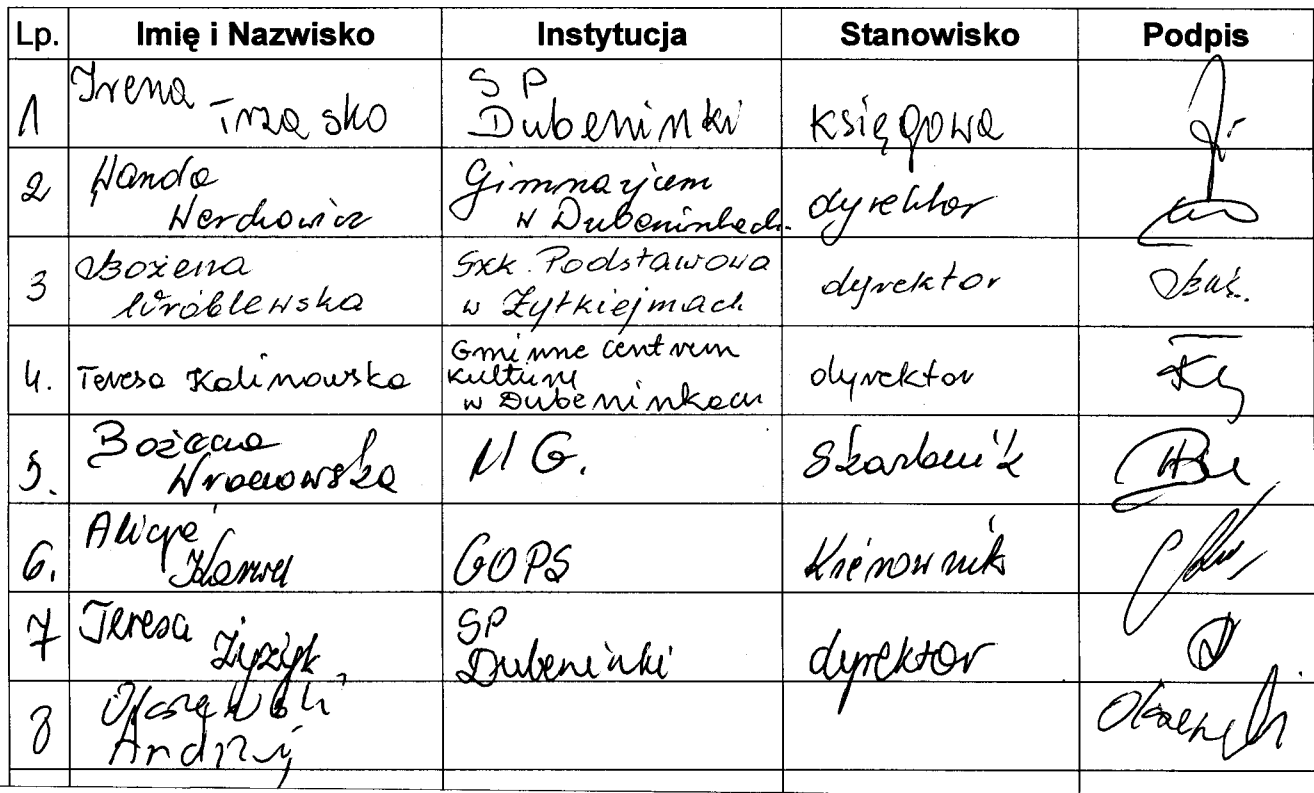 Lp. Imię i Nazwisko Instytucja Stanowisko Podpis
1 Irena Trząsko SP Dubeninki księgowa
2 Wanda Werchowicz Gimnazjum w Dubeninkach dyrektor
3 Bożena Wróblewska Szk. Podstawowa w Żytkiejmach dyrektor
4. Teresa Kalinowska Gminne centrum kultury w Dubeninkach dyrektor
5. Bożena UG. Skarbnik
6. Alicja GOPS Kierownik
7 Teresa SP Dubeninki dyrektor
8 Andrzej